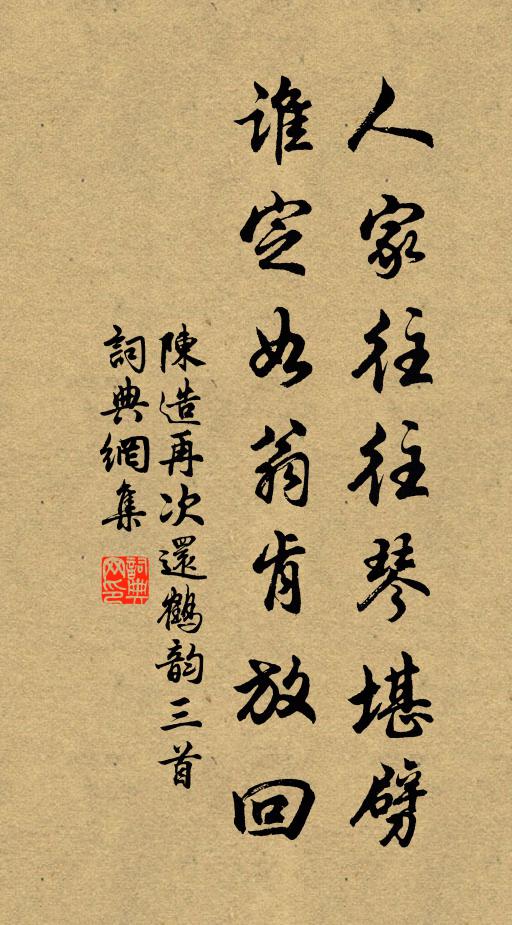 人家往往琴堪劈
誰定如翁肯放回
陳造再次還鶴韵三首
詞典網集
詞典網印